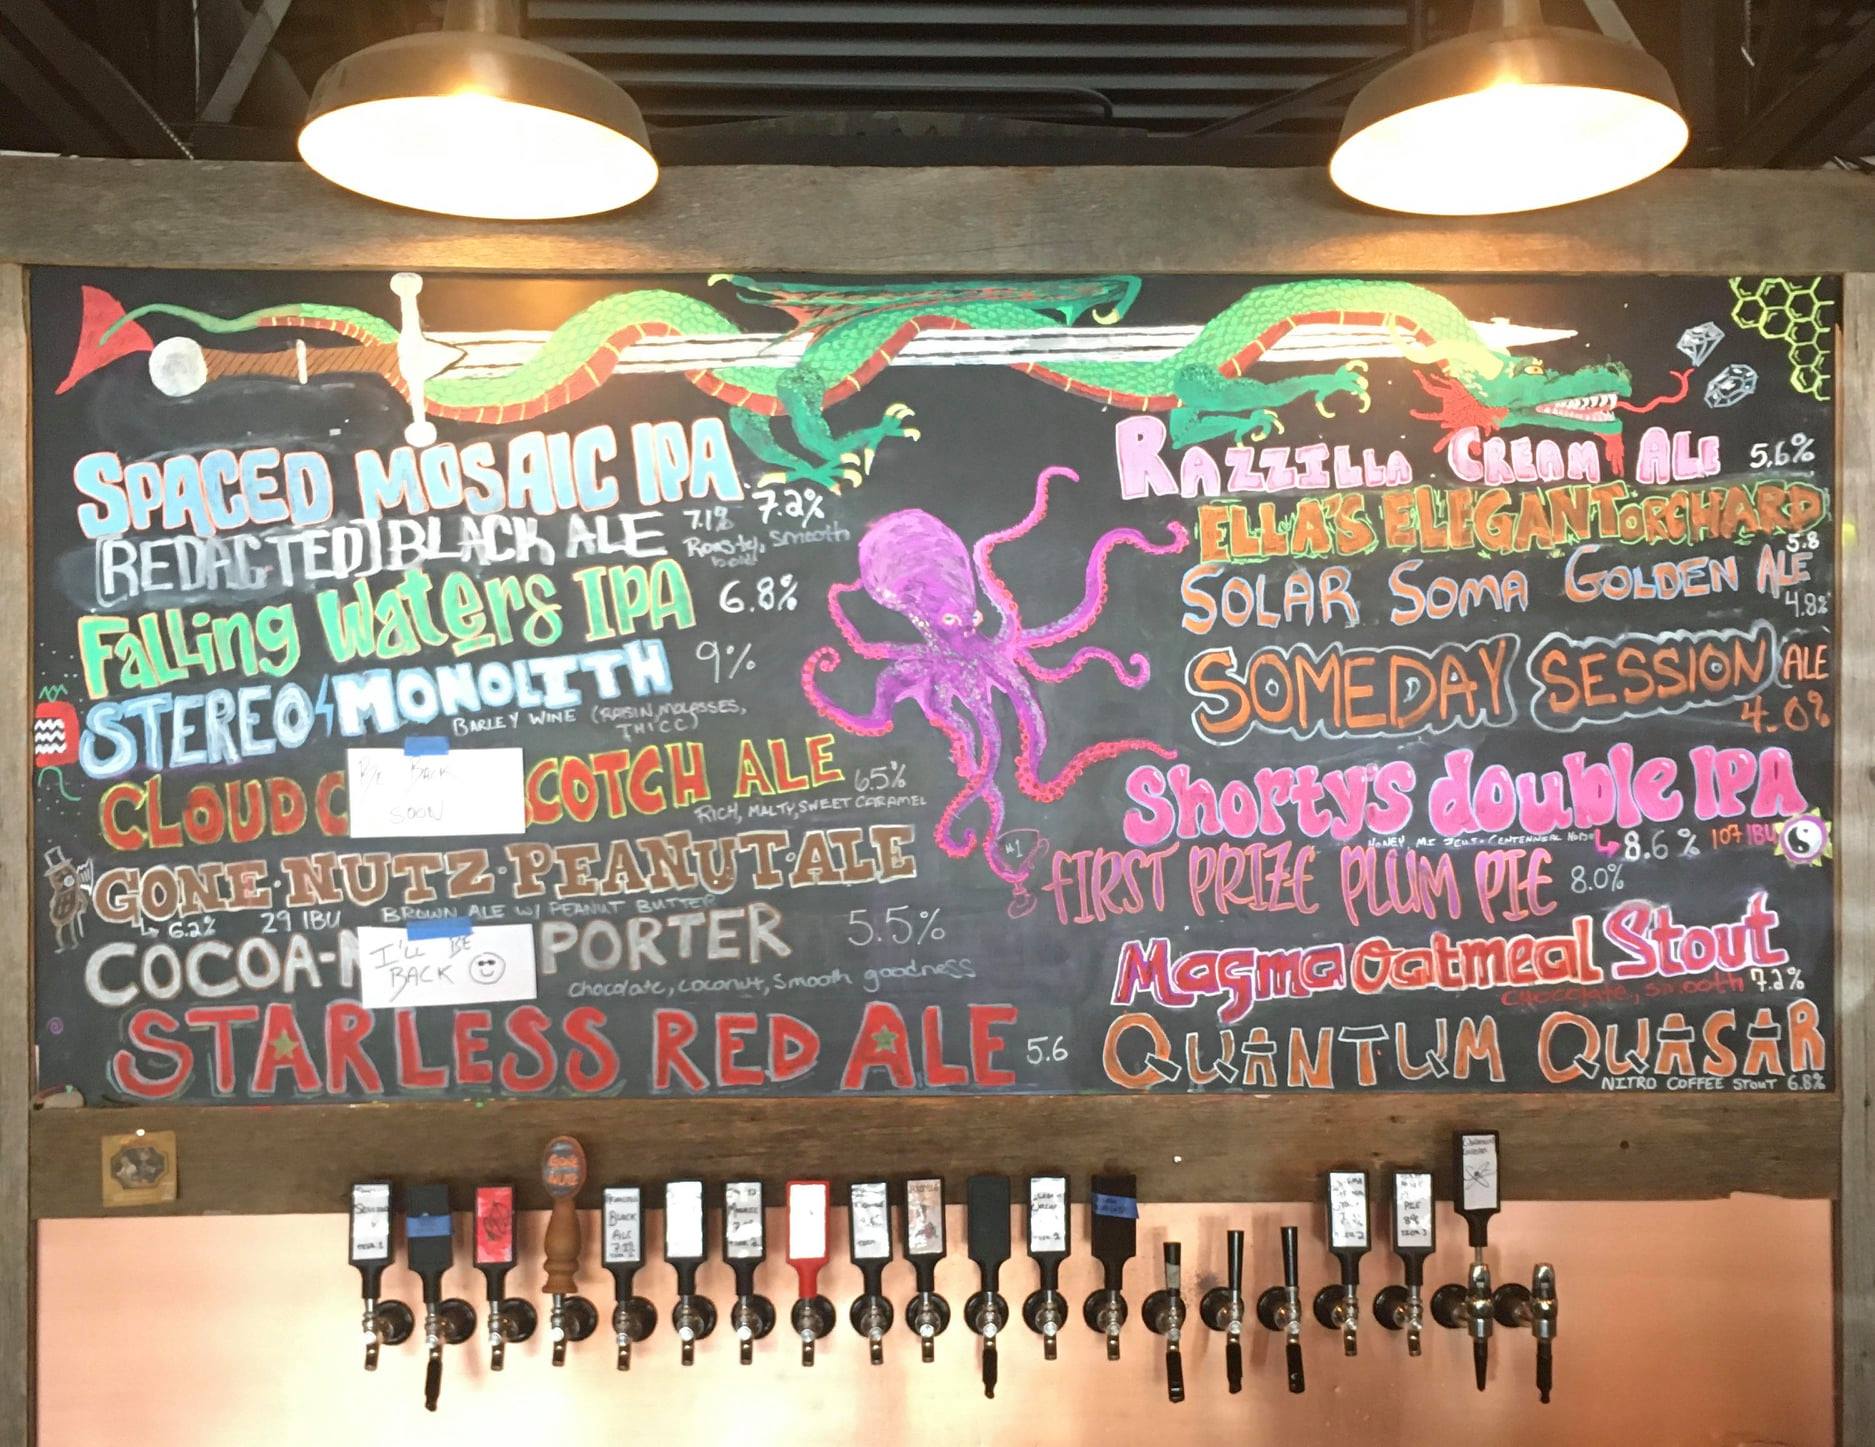 SPACED MOSAIC IPA
7.2%
[REDACTED] BLACK ALE 7.1%
Roasty, smooth
bold
Falling Waters IPA 6.8%
STEREO MONOLITH 9%
BARLEY WINE (RAISIN, MOLASSES,
THICC)
CLOUD C COTCH ALE 65%
BE BACK
SOON
RICH, MALTY, SWEET CARAMEL
GONE·NUTZ·PEANUT·ALE
6.2% 29 IBU BROWN ALE W/ PEANUT BUTTER
COCOA-N PORTER 5.5%
I'LL BE
BACK
chocolate, coconut, smooth goodness
STARLESS RED ALE 5.6
#1
RAZZILLA CREAM ALE 5.6%
ELLA'S ELEGANT ORCHARD
5.8
SOLAR SOMA GOLDEN ALE
4.8%
SOMEDAY SESSION ALE
4.0%
Shorty's double IPA
HONEY, CENTENNIAL 8.6% 107 IBU
FIRST PRIZE PLUM PIE 8.0%
Magma Oatmeal Stout
Chocolate, smooth 7.2%
QUANTUM QUASAR
NITRO COFFEE STOUT 6.8%
GONE
NUTZ
BLACK
ALE
7.1%
PIE
8%